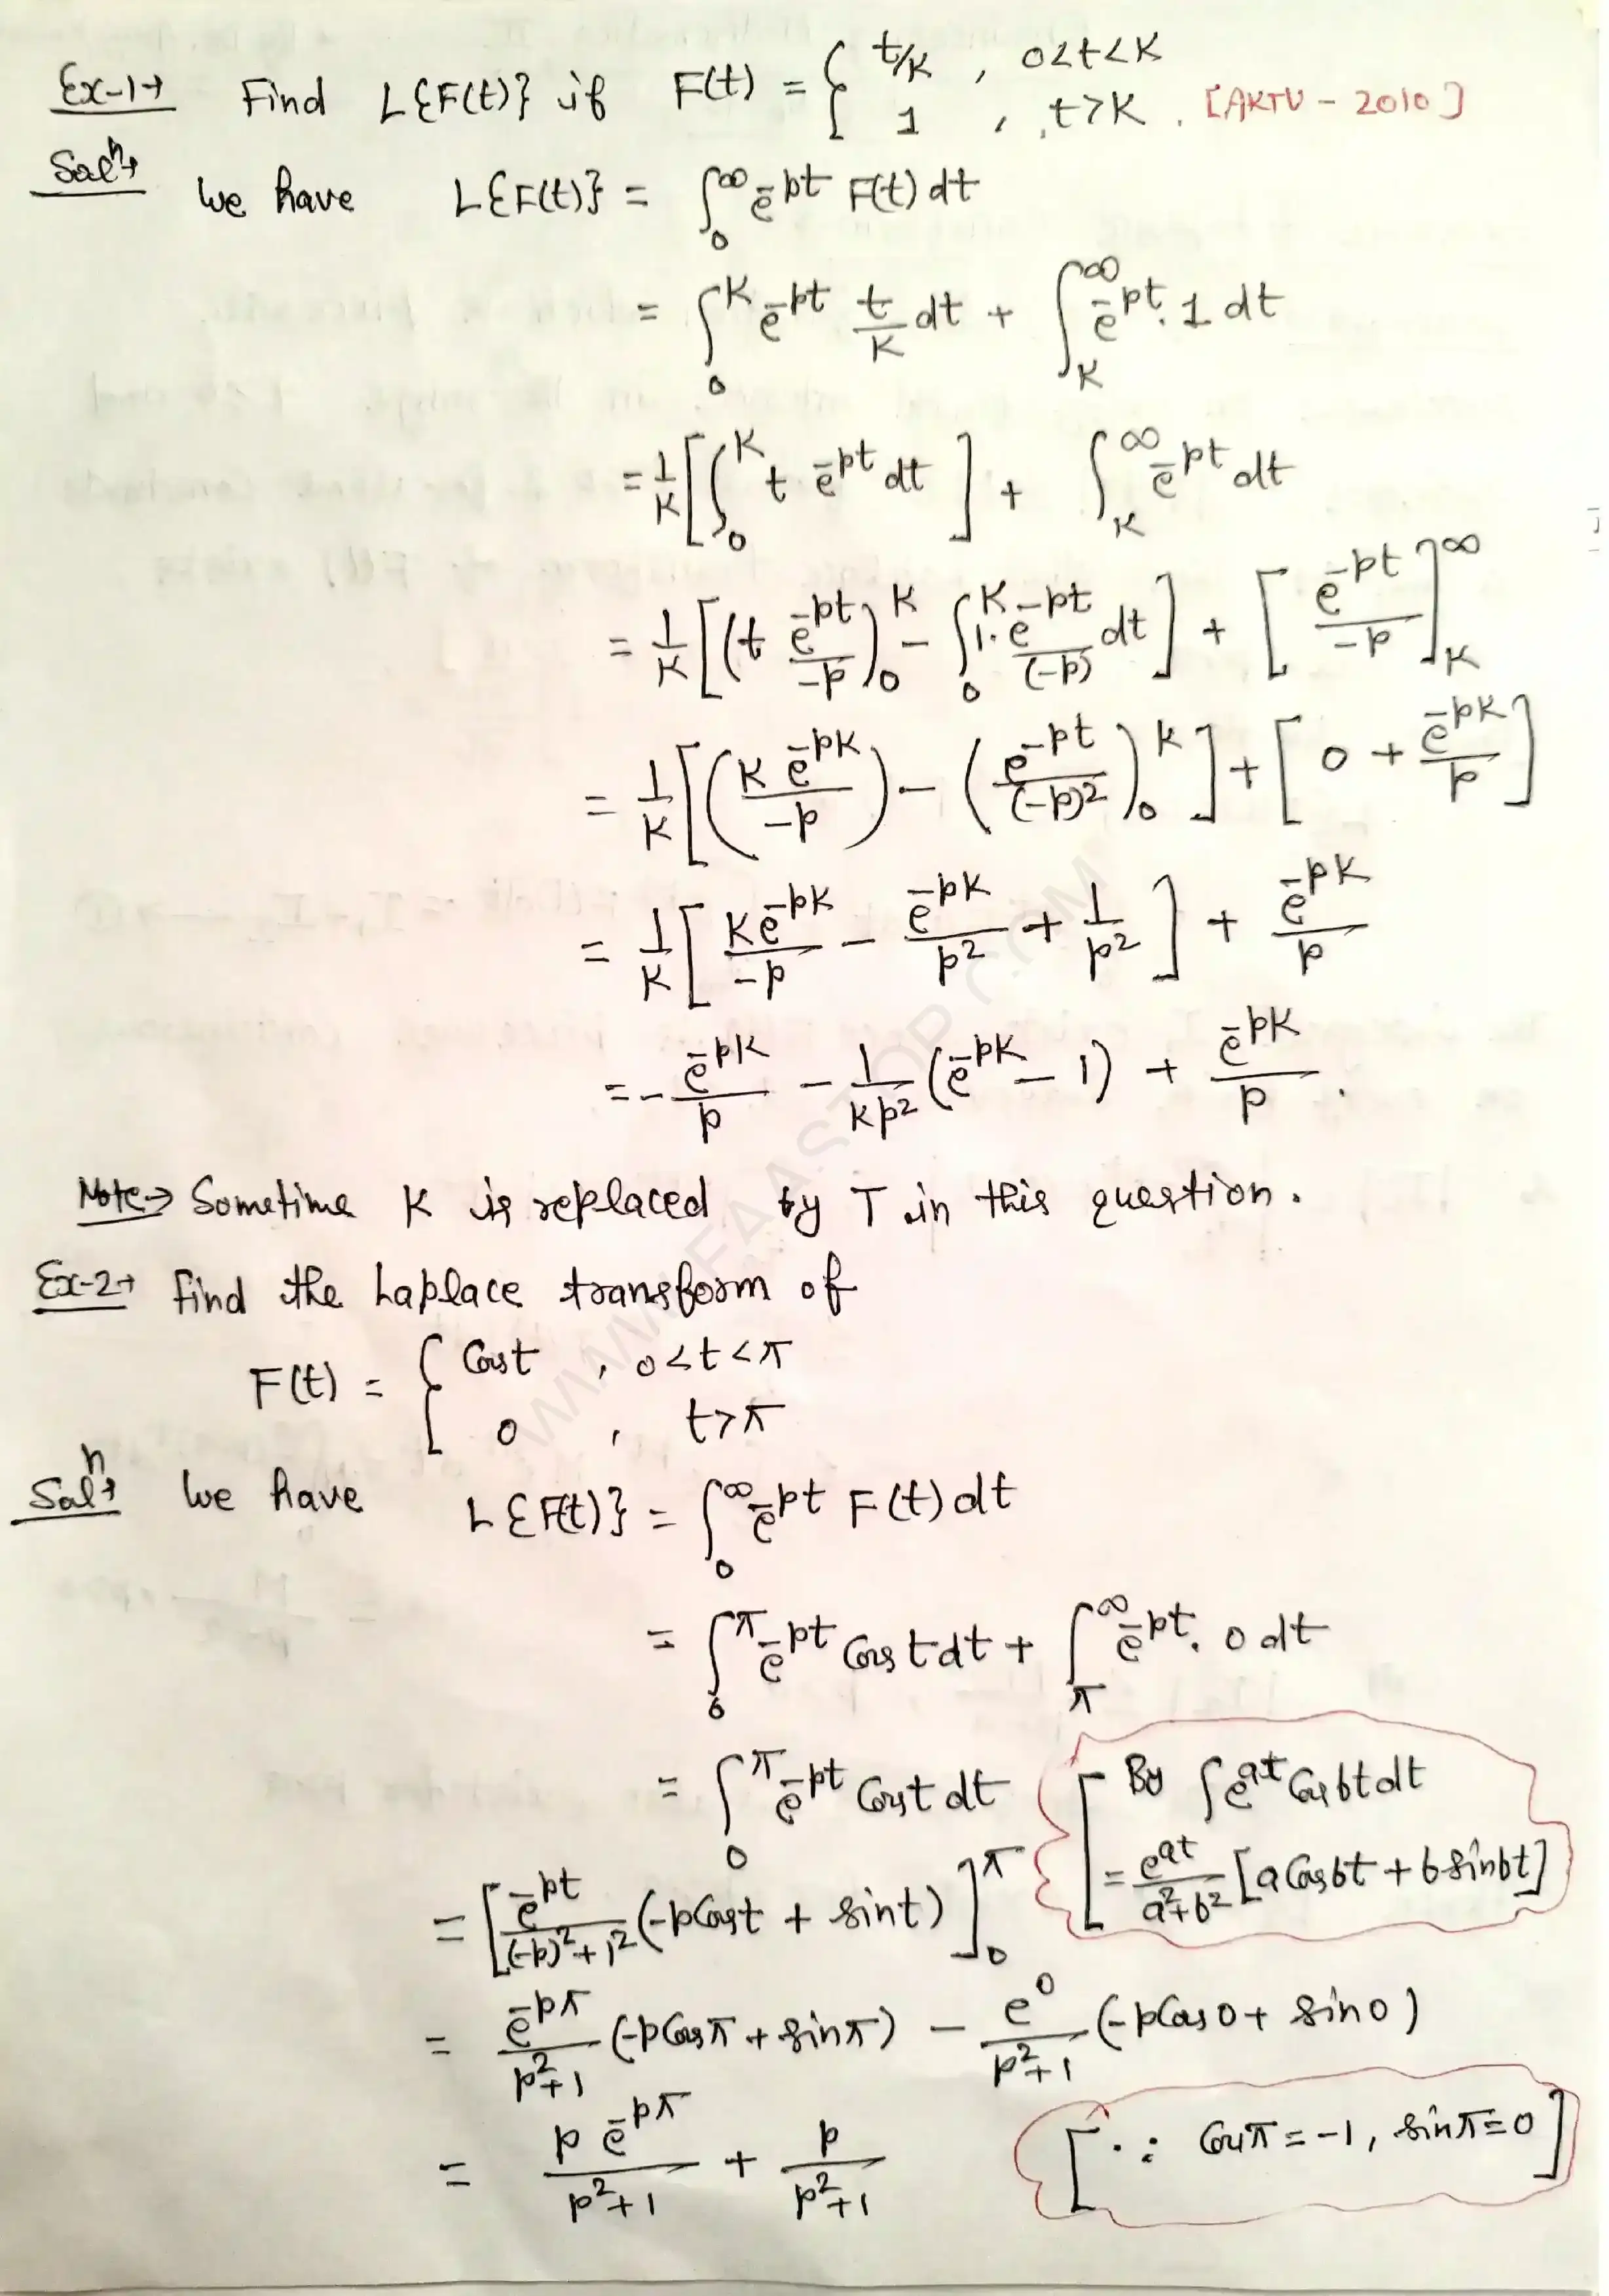 Ex-1→ Find L{F(t)} if F(t) = { t/K , 0<t<K
1 , t>K . [AKTU - 2010]
Solⁿ→ We have L{F(t)} = ∫₀^∞ e^-pt F(t) dt
= ∫₀^K e^-pt t/K dt + ∫_K^∞ e^-pt . 1 dt
= 1/K [∫₀^K t e^-pt dt] + ∫_K^∞ e^-pt dt
= 1/K [(t e^-pt/-p)₀^K - ∫₀^K 1. e^-pt/(-p) dt] + [e^-pt/-p]_K^∞
= 1/K [(K e^-pK/-p) - (e^-pt/(-p)²)₀^K] + [0 + e^-pK/p]
= 1/K [K e^-pK/-p - e^-pK/p² + 1/p²] + e^-pK/p
= - e^-pK/p - 1/Kp² (e^-pK - 1) + e^-pK/p .
Note→ Sometime K is replaced by T in this question.
Ex-2→ Find the Laplace transform of
F(t) = { Cost , 0<t<π
0 , t>π
Solⁿ→ We have L{F(t)} = ∫₀^∞ e^-pt F(t) dt
= ∫₀^π e^-pt Cos t dt + ∫_π^∞ e^-pt . 0 dt
= ∫₀^π e^-pt Cost dt [By ∫e^at Cos bt dt
= e^at/a²+b² [a Cosbt + b sinbt]
= [e^-pt/(-p)²+1² (-pCost + sint)]₀^π
= e^-pπ/p²+1 (-pCosπ + sinπ) - e^0/p²+1 (-pCos0 + sin0)
= p e^-pπ/p²+1 + p/p²+1 [∵ Cosπ = -1, sinπ=0]
WWW.FAASTOP.COM